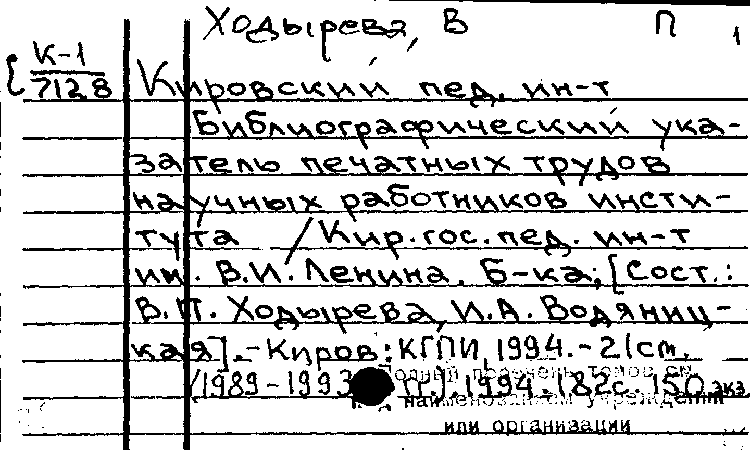 Ходырева, В П 1
К-1
7128
Кировский пед. ин-т
Библиографический ука-
затель печатных трудов
научных работников инсти-
тута / Кир. гос. пед. ин-т
им. В.И. Ленина. Б-ка; [Сост.:
В.П. Ходырева, И.А. Водяниц-
кая]. - Киров: КГПИ, 1994. - 21см.
Полный перечень томов см.
(1989-1993 гг.). 1994. 182с. 150 экз.
наименованием учреждения
или организации